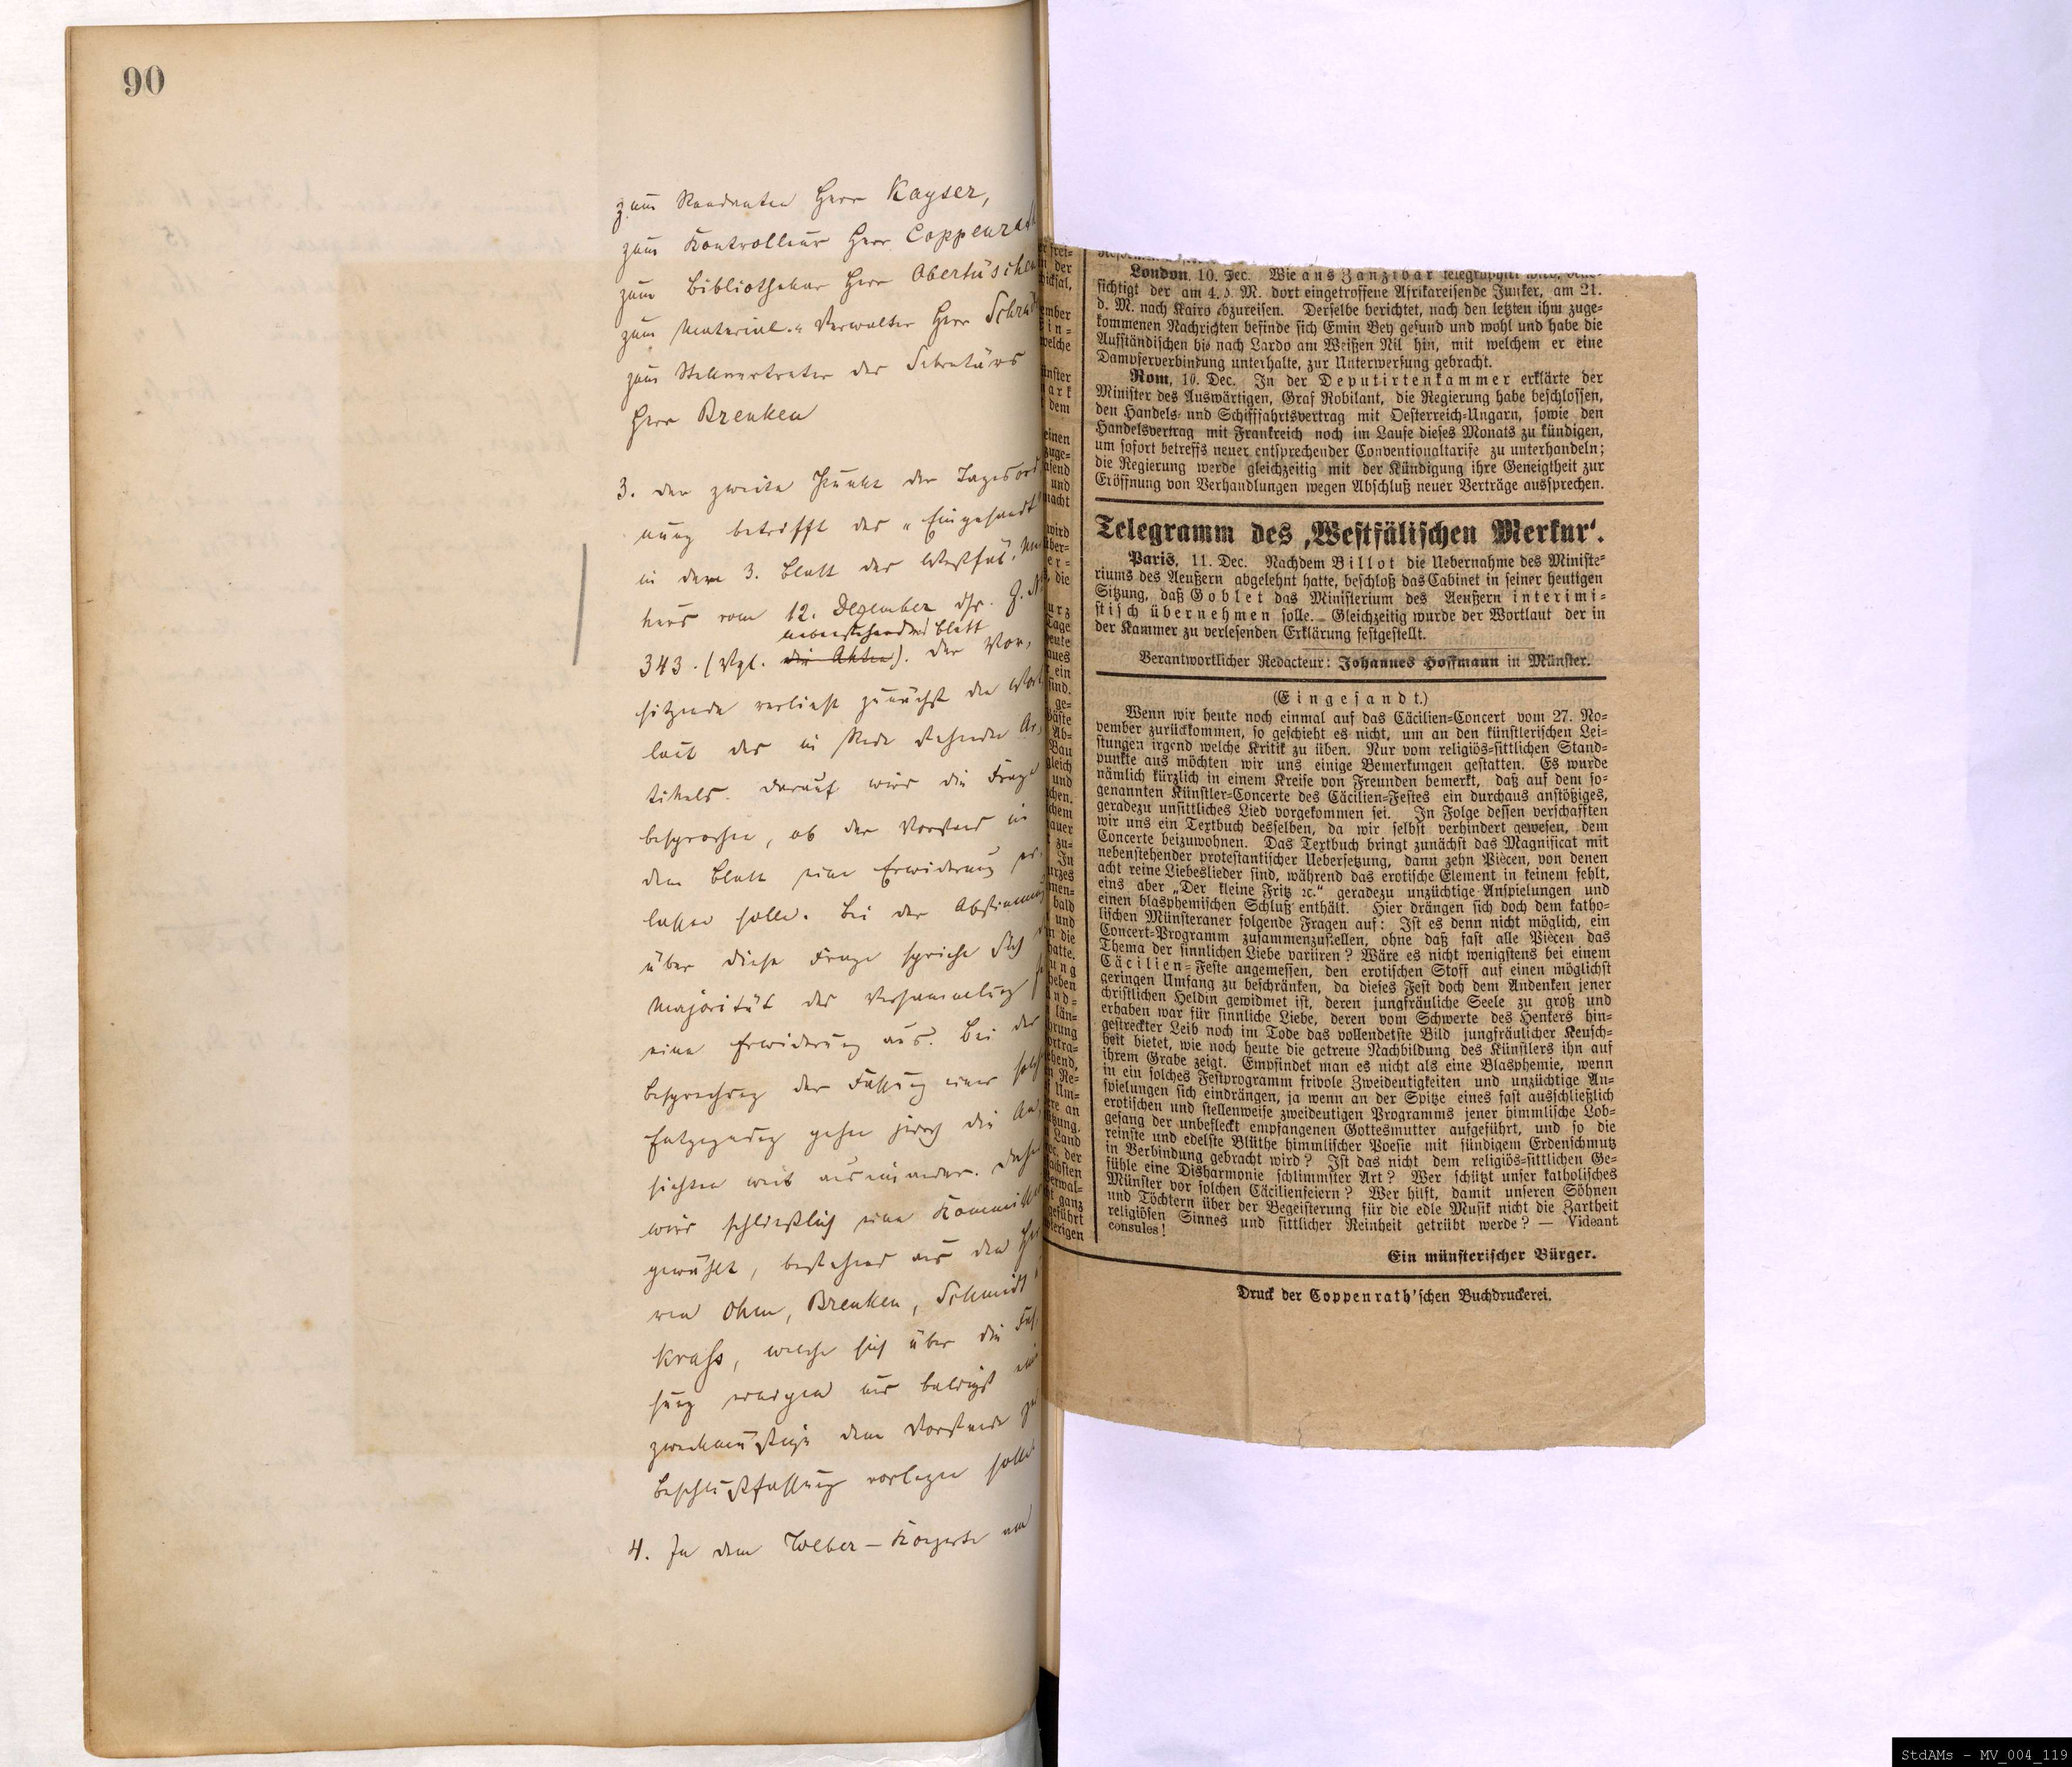 90
zum Rendanten Herr Kayser,
zum Kontrolleur Herr Coppenrath
zum Bibliothekar Herr Obertüschen
zum Material-Verwalter Herr
zum Stellvertreter des Sekretärs
Herr Brenken
3. der zweite Punkt der Tagesord
nung betrifft das "Eingesandt"
in dem 3. Blatt des Westfäl. Mer
kurs vom 12. Dezember ds. J. N.
nebenstehendes Blatt
343. (Vgl. die Akten). der Vor,
sitzende verliest zunächst den Wort
laut des in Rede stehenden Ar,
tikels. darauf wird die Frage
besprochen, ob der Vorstand in
dem Blatt eine Erwiderung er,
lassen solle. Bei der Abstimmung
über diese Frage spricht sich
Majorität der Versammlung
eine Erwiderung aus. Bei der
Besprechung der Fassung einer solch
Entgegnung gehen jedoch die An,
sichten weit auseinander. daher
wird schließlich eine Kommission
gewählt, bestehend aus den Her
ren Ohm, Brenken, Schmidt
Krass, welche sich über die Fas,
sung einigen und baldigst eine
zweckmäßige dem Vorstande zur
Beschlußfassung vorlegen solle.
4. In dem Weber-Konzerte am
London, 10. Dec. Wie aus Zanzibar telegraphirt wird, beab-
sichtigt der am 4. d. M. dort eingetroffene Afrikareisende Junker, am 21.
d. M. nach Kairo abzureisen. Derselbe berichtet, nach den letzten ihm zuge-
kommenen Nachrichten befinde sich Emin Bey gesund und wohl und habe die
Aufständischen bis nach Lardo am Weißen Nil hin, mit welchem er eine
Dampferverbindung unterhalte, zur Unterwerfung gebracht.
Rom, 10. Dec. In der Deputirtenkammer erklärte der
Minister des Auswärtigen, Graf Robilant, die Regierung habe beschlossen,
den Handels- und Schifffahrtsvertrag mit Oesterreich-Ungarn, sowie den
Handelsvertrag mit Frankreich noch im Laufe dieses Monats zu kündigen,
um sofort betreffs neuer entsprechender Conventionaltarife zu unterhandeln;
die Regierung werde gleichzeitig mit der Kündigung ihre Geneigtheit zur
Eröffnung von Verhandlungen wegen Abschluß neuer Verträge aussprechen.
Telegramm des ‚Westfälischen Merkur‘.
Paris, 11. Dec. Nachdem Billot die Uebernahme des Ministe-
riums des Aeußern abgelehnt hatte, beschloß das Cabinet in seiner heutigen
Sitzung, daß Goblet das Ministerium des Aeußern interimi-
stisch übernehmen solle. Gleichzeitig wurde der Wortlaut der in
der Kammer zu verlesenden Erklärung festgestellt.
Verantwortlicher Redacteur: Johannes Hoffmann in Münster.
(Eingesandt.)
Wenn wir heute noch einmal auf das Cäcilien-Concert vom 27. No-
vember zurückkommen, so geschieht es nicht, um an den künstlerischen Lei-
stungen irgend welche Kritik zu üben. Nur vom religiös-sittlichen Stand-
punkte aus möchten wir uns einige Bemerkungen gestatten. Es wurde
nämlich kürzlich in einem Kreise von Freunden bemerkt, daß auf dem so-
genannten Künstler-Concerte des Cäcilien-Festes ein durchaus anstößiges,
geradezu unsittliches Lied vorgekommen sei. In Folge dessen verschafften
wir uns ein Textbuch desselben, da wir selbst verhindert gewesen, dem
Concerte beizuwohnen. Das Textbuch bringt zunächst das Magnificat mit
nebenstehender protestantischer Uebersetzung, dann zehn Piècen, von denen
acht reine Liebeslieder sind, während das erotische Element in keinem fehlt,
eins aber „Der kleine Fritz ꝛc.“ geradezu unzüchtige Anspielungen und
einen blasphemischen Schluß enthält. Hier drängen sich doch dem katho-
lischen Münsteraner folgende Fragen auf: Ist es denn nicht möglich, ein
Concert-Programm zusammenzustellen, ohne daß fast alle Piècen das
Thema der sinnlichen Liebe variiren? Wäre es nicht wenigstens bei einem
Cäcilien-Feste angemessen, den erotischen Stoff auf einen möglichst
geringen Umfang zu beschränken, da dieses Fest doch dem Andenken jener
christlichen Heldin gewidmet ist, deren jungfräuliche Seele zu groß und
erhaben war für sinnliche Liebe, deren vom Schwerte des Henkers hin-
gestreckter Leib noch im Tode das vollendetste Bild jungfräulicher Keusch-
heit bietet, wie noch heute die getreue Nachbildung des Künstlers ihn auf
ihrem Grabe zeigt. Empfindet man es nicht als eine Blasphemie, wenn
in ein solches Festprogramm frivole Zweideutigkeiten und unzüchtige An-
spielungen sich eindrängen, ja wenn an der Spitze eines fast ausschließlich
erotischen und stellenweise zweideutigen Programms jener himmlische Lob-
gesang der unbefleckt empfangenen Gottesmutter aufgeführt, und so die
reinste und edelste Blüthe himmlischer Poesie mit sündigem Erdenschmutz
in Verbindung gebracht wird? Ist das nicht dem religiös-sittlichen Ge-
fühle eine Disharmonie schlimmster Art? Wer schützt unser katholisches
Münster vor solchen Cäcilienfeiern? Wer hilft, damit unseren Söhnen
und Töchtern über der Begeisterung für die edle Musik nicht die Zartheit
religiösen Sinnes und sittlicher Reinheit getrübt werde? — Videant
consules!
Ein münsterischer Bürger.
Druck der Coppenrath'schen Buchdruckerei.
StdAMs - MV_004_119